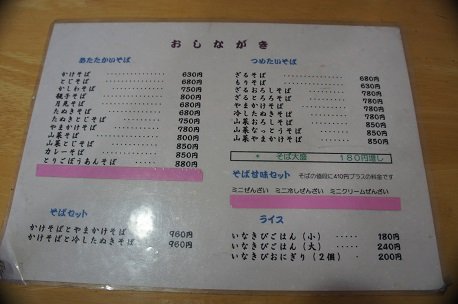 おしながき
あたたかいそば
かけそば 630円
とじそば 680円
かしわそば 750円
親子そば 800円
月見そば 680円
たぬきそば 680円
たぬきとじそば 750円
やまかけそば 780円
山菜そば 800円
山菜とじそば 850円
カレーそば 850円
とりごぼうあんそば 880円
そばセット
かけそばとやまかけそば 960円
かけそばと冷したぬきそば 960円
つめたいそば
ざるそば 680円
もりそば 630円
ざるおろしそば 780円
ざるとろろそば 780円
やまかけそば 780円
冷したぬきそば 780円
山菜おろしそば 850円
山菜なっとうそば 850円
山菜やまかけそば 850円
* そば大盛 180円増し
そば甘味セット そばの値段に410円プラスの料金です
ミニぜんざい ミニ冷しぜんざい ミニクリームぜんざい
ライス
いなきびごはん(小) 180円
いなきびごはん(大) 240円
いなきびおにぎり(2個) 200円